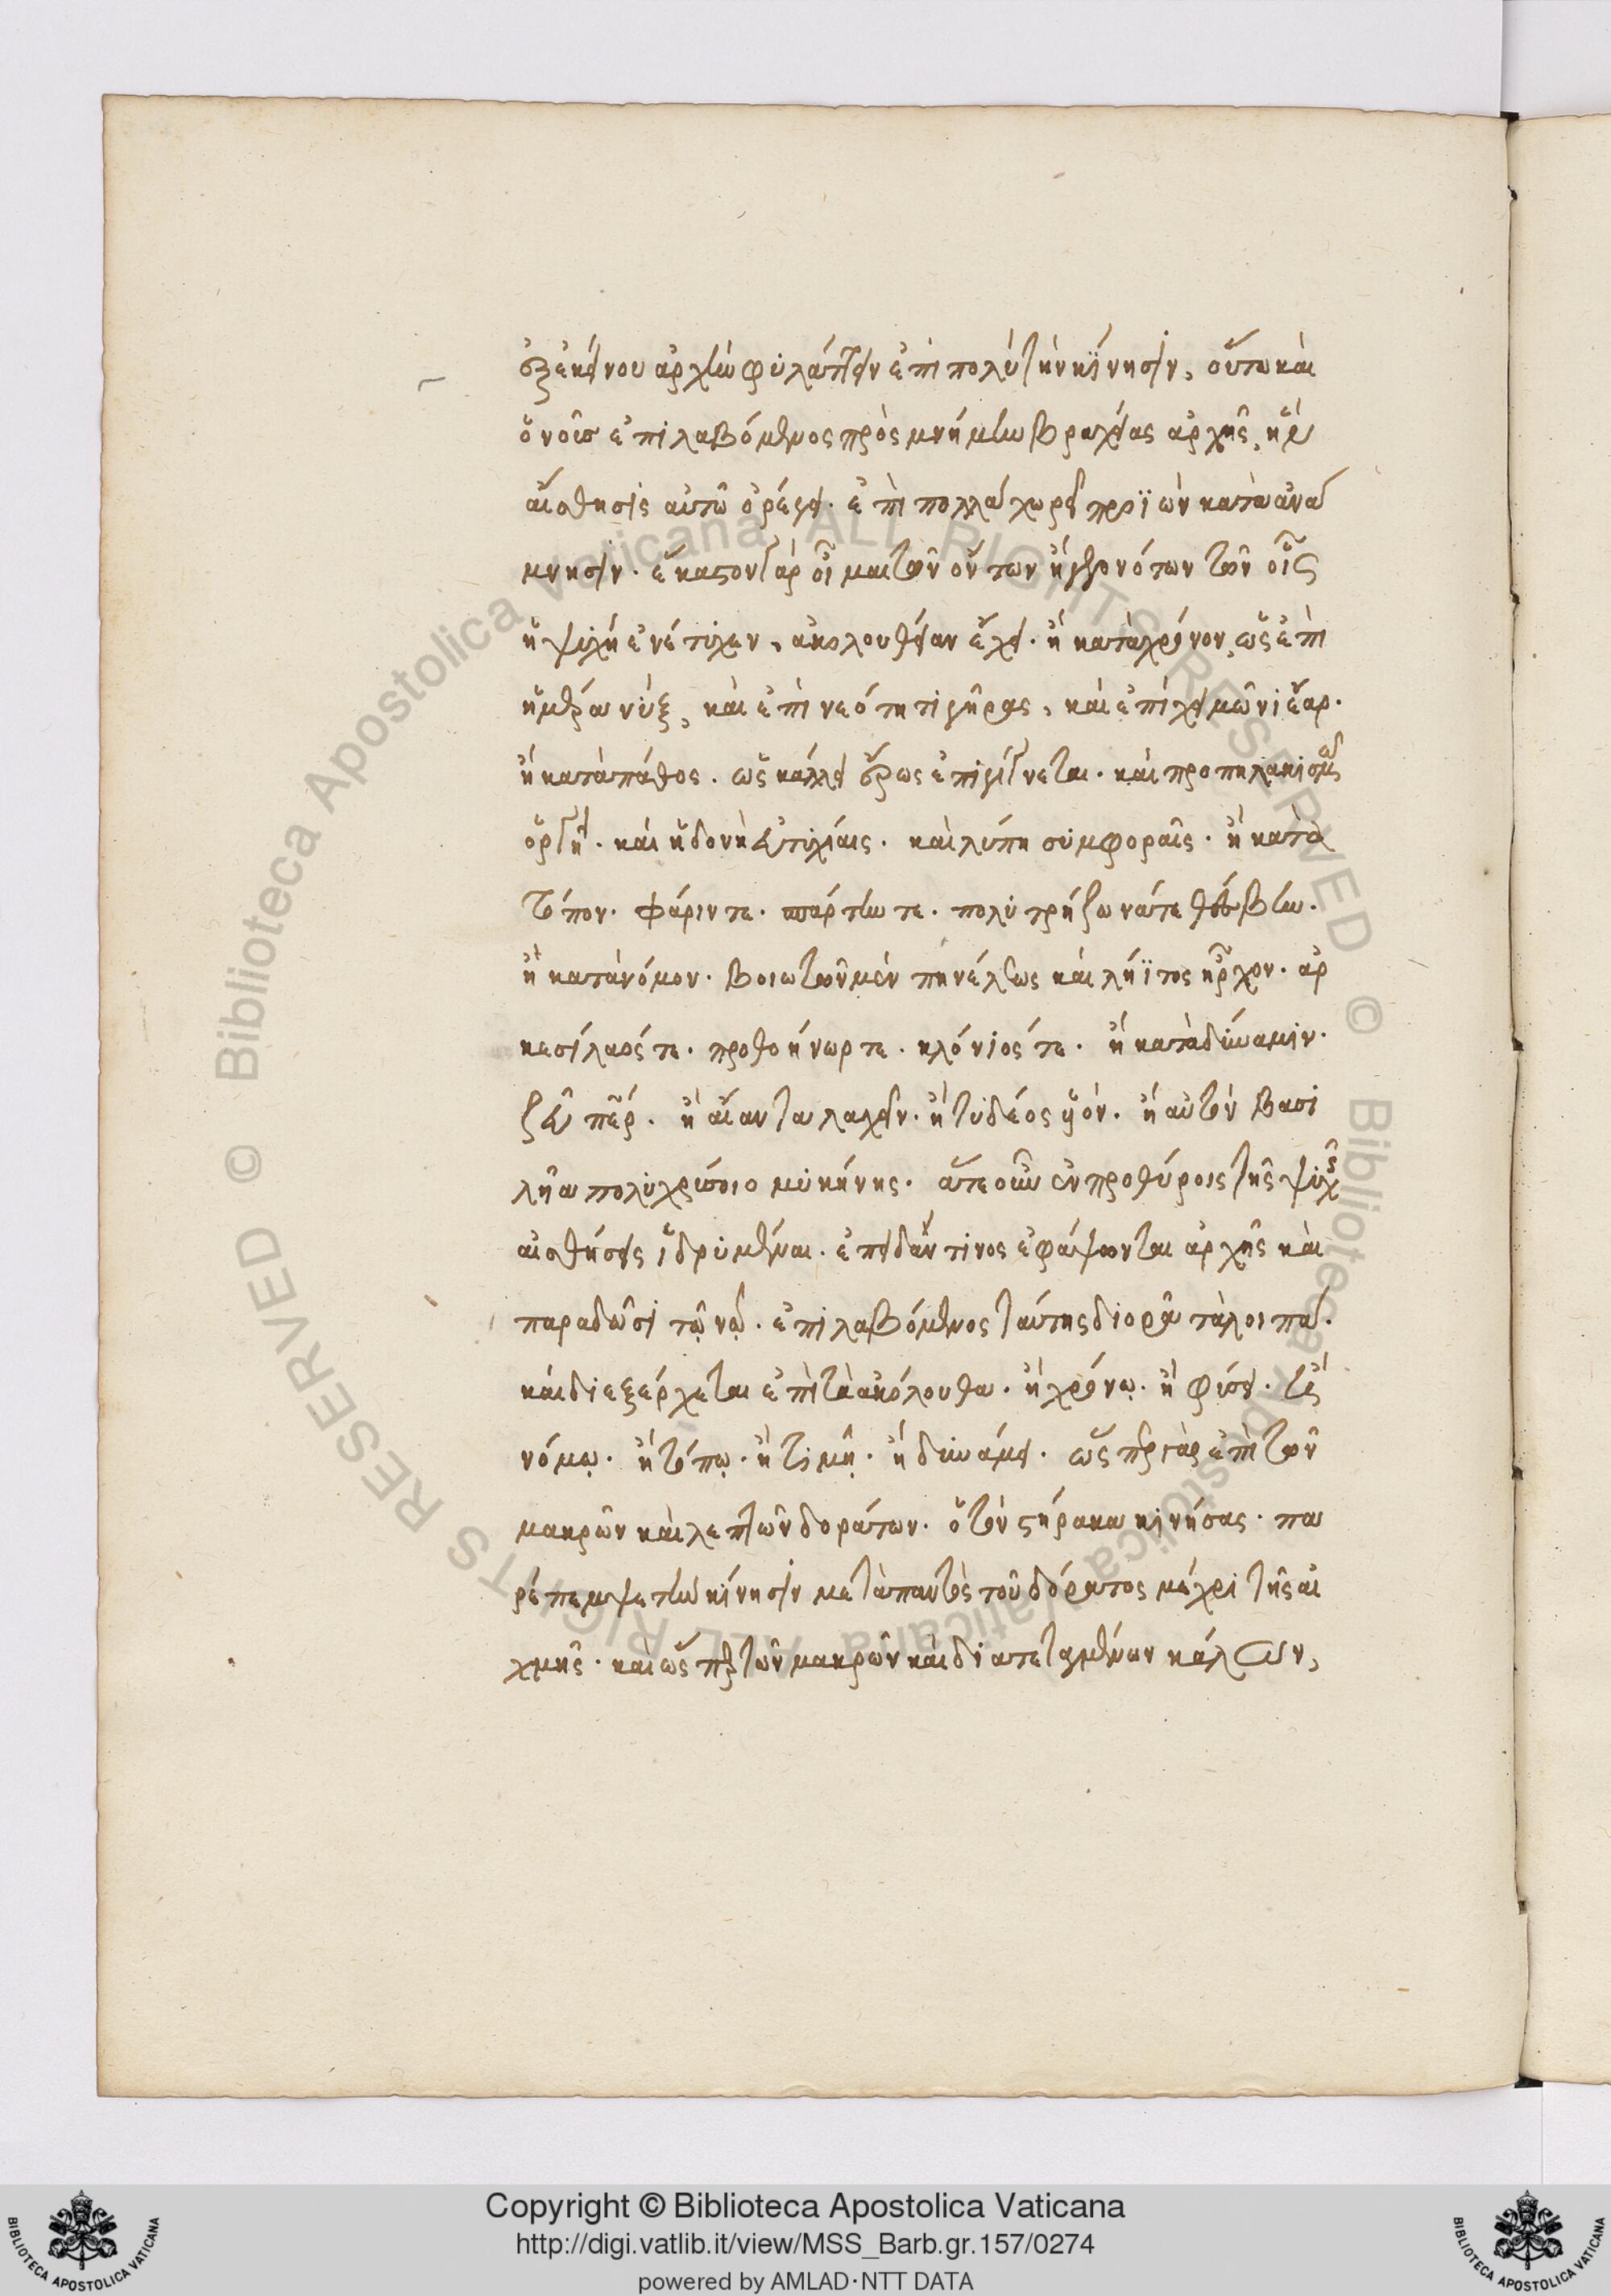 ἐξ ἐκείνου ἀρχὴν φυλάττειν ἐπὶ πολὺ τὴν κίνησιν, οὕτω καὶ
ὁ νοῦς ἐπιλαβόμενος πρὸς μνήμην βραχείας ἀρχῆς, ἣν
αἴσθησις αὐτῷ ὀρέγει. ἐπὶ πολλὰ χωρεῖ προϊὼν κατὰ ἀνά
μνησιν. ἕκαστον γὰρ οἶμαι τῶν ὄντων ἢ γεγονότων τῶν οἷς
ἡ ψυχὴ ἐνέτυχεν, ἀκολουθίαν ἔχει. ἢ κατὰ χρόνον, ὡς ἐπὶ
ἡμέρα νὺξ, καὶ ἐπὶ νεότητι γῆρας, καὶ ἐπὶ χειμῶνι ἔαρ.
ἢ κατὰ πάθος. ὡς κάλλει ἔρως ἐπιγίγνεται. καὶ προπηλακισμῷ
ὀργή. καὶ ἡδονὴ εὐτυχίαις. καὶ λύπη συμφοραῖς. ἢ κατὰ
τόπον. Φάριν τε. σπάρτην τε. πολυτρήρωνά τε θίσβην.
ἢ κατὰ νόμον. Βοιωτῶν μὲν πηνέλεως καὶ λήϊτος ἦρχον. ἀρ
κεσίλαός τε. προθοήνωρ τε. κλόνιός τε. ἢ κατὰ δύναμιν.
ζεῦ πάτερ. ἢ αἴαντα λαχεῖν. ἢ τυδέος υἱόν. ἢ αὐτὸν βασι
λῆα πολυχρύσοιο μυκήνης. ἅτε οὖν ἐν προθύροις τῆς ψυχῆς
αἰσθήσεις ἱδρυμέναι. ἐπειδάν τινος ἐφάψωνται ἀρχῆς καὶ
παραδῶσι τῷ νῷ. ἐπιλαβόμενος ταύτης διορᾷ τὰ λοιπὰ.
καὶ διεξέρχεται ἐπὶ τὰ ἀκόλουθα. ἢ χρόνῳ. ἢ φύσει.
νόμῳ. ἢ τόπῳ. ἢ τιμῇ. ἢ δυνάμει. ὥσπερ γὰρ ἐπὶ τῶν
μακρῶν καὶ λεπτῶν δοράτων. ὁ τὸν στύρακα κινήσας. πα
ρέπεμψε τὴν κίνησιν μετὰ παντὸς τοῦ δόρατος μέχρι τῆς αἰ
χμῆς. καὶ ὥσπερ τῶν μακρῶν καὶ διατεταμένων κάλων,
Copyright © Biblioteca Apostolica Vaticana
http://digi.vatlib.it/view/MSS_Barb.gr.157/0274
powered by AMLAD·NTT DATA